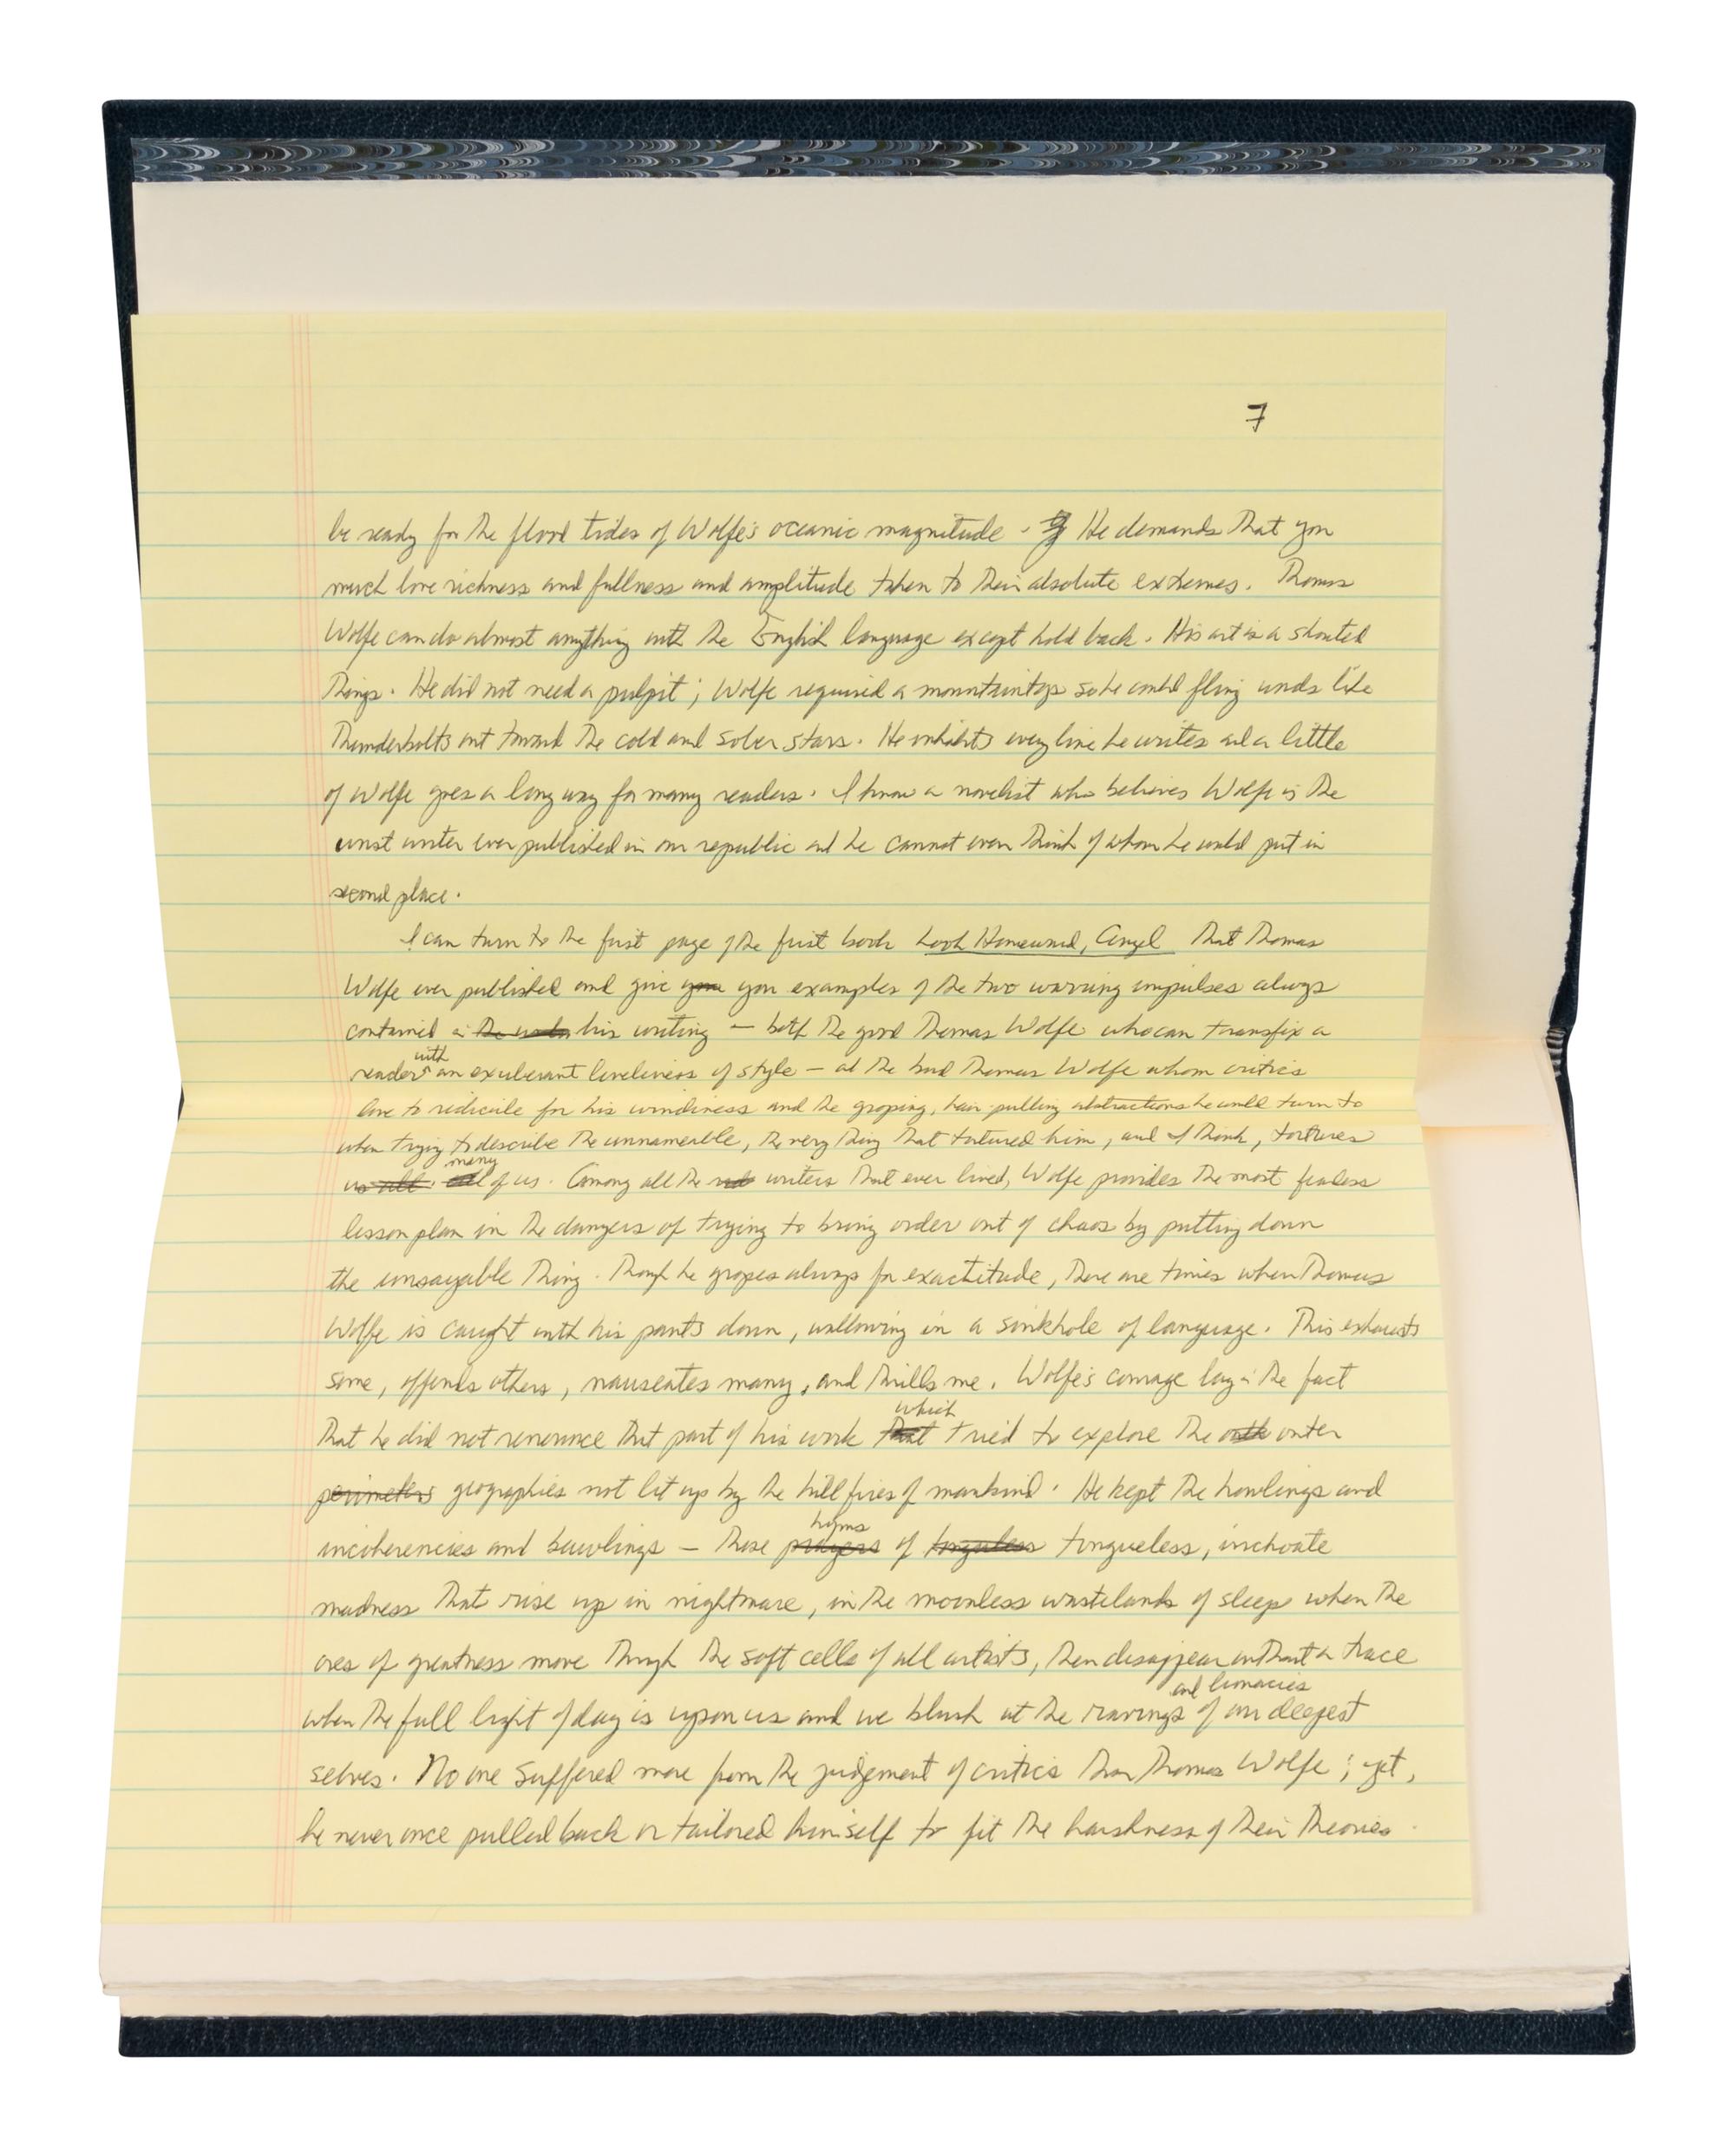 7
be ready for the flood tides of Wolfe's oceanic magnitude. He demands that you
much love richness and fullness and amplitude taken to their absolute extremes. Thomas
Wolfe can do almost anything with the English language except hold back. His art is a shouted
things. He did not need a pulpit; Wolfe required a mountaintop so he could fling words like
thunderbolts out toward the cold and sober stars. He inhabits every line he writes and a little
of Wolfe goes a long way for many readers. I know a novelist who believes Wolfe is the
worst writer ever published in our republic and he cannot even think of whom he would put in
second place.
I can turn to the first page of the first book Look Homeward, Angel that Thomas
Wolfe ever published and give you you examples of the two warring impulses always
contained in the his writing – both the good Thomas Wolfe who can transfix a
reader with an exuberant loveliness of style – and the bad Thomas Wolfe whom critics
love to ridicule for his windiness and the groping, hair-pulling abstractions he will turn to
when trying to describe the unnameable, the very thing that tortured him, and I think, tortures
us all. all many of us. Among all the writers that ever lived, Wolfe provides the most fearless
lesson plan in the dangers of trying to bring order out of chaos by putting down
the unsayable thing. Though he gropes always for exactitude, there are times when Thomas
Wolfe is caught with his pants down, wallowing in a sinkhole of language. This exhausts
some, offends others, nauseates many, and thrills me. Wolfe's courage lay in the fact
that he did not renounce that part of his work that which tried to explore the outer
perimeters geographies not lit up by the hill fires of mankind. He kept the howlings and
incoherencies and bawlings – those prayers hyms of tongueless tongueless, inchoate
madness that rise up in nightmare, in the moonless wastelands of sleep when the
ores of greatness move through the soft cells of all artists, then disappear without a trace
when the full light of day is upon us and we blush at the ravings and lunacies of our deepest
selves. No one suffered more from the judgement of critics than Thomas Wolfe; yet,
he never once pulled back or tailored himself to fit the harshness of their theories.